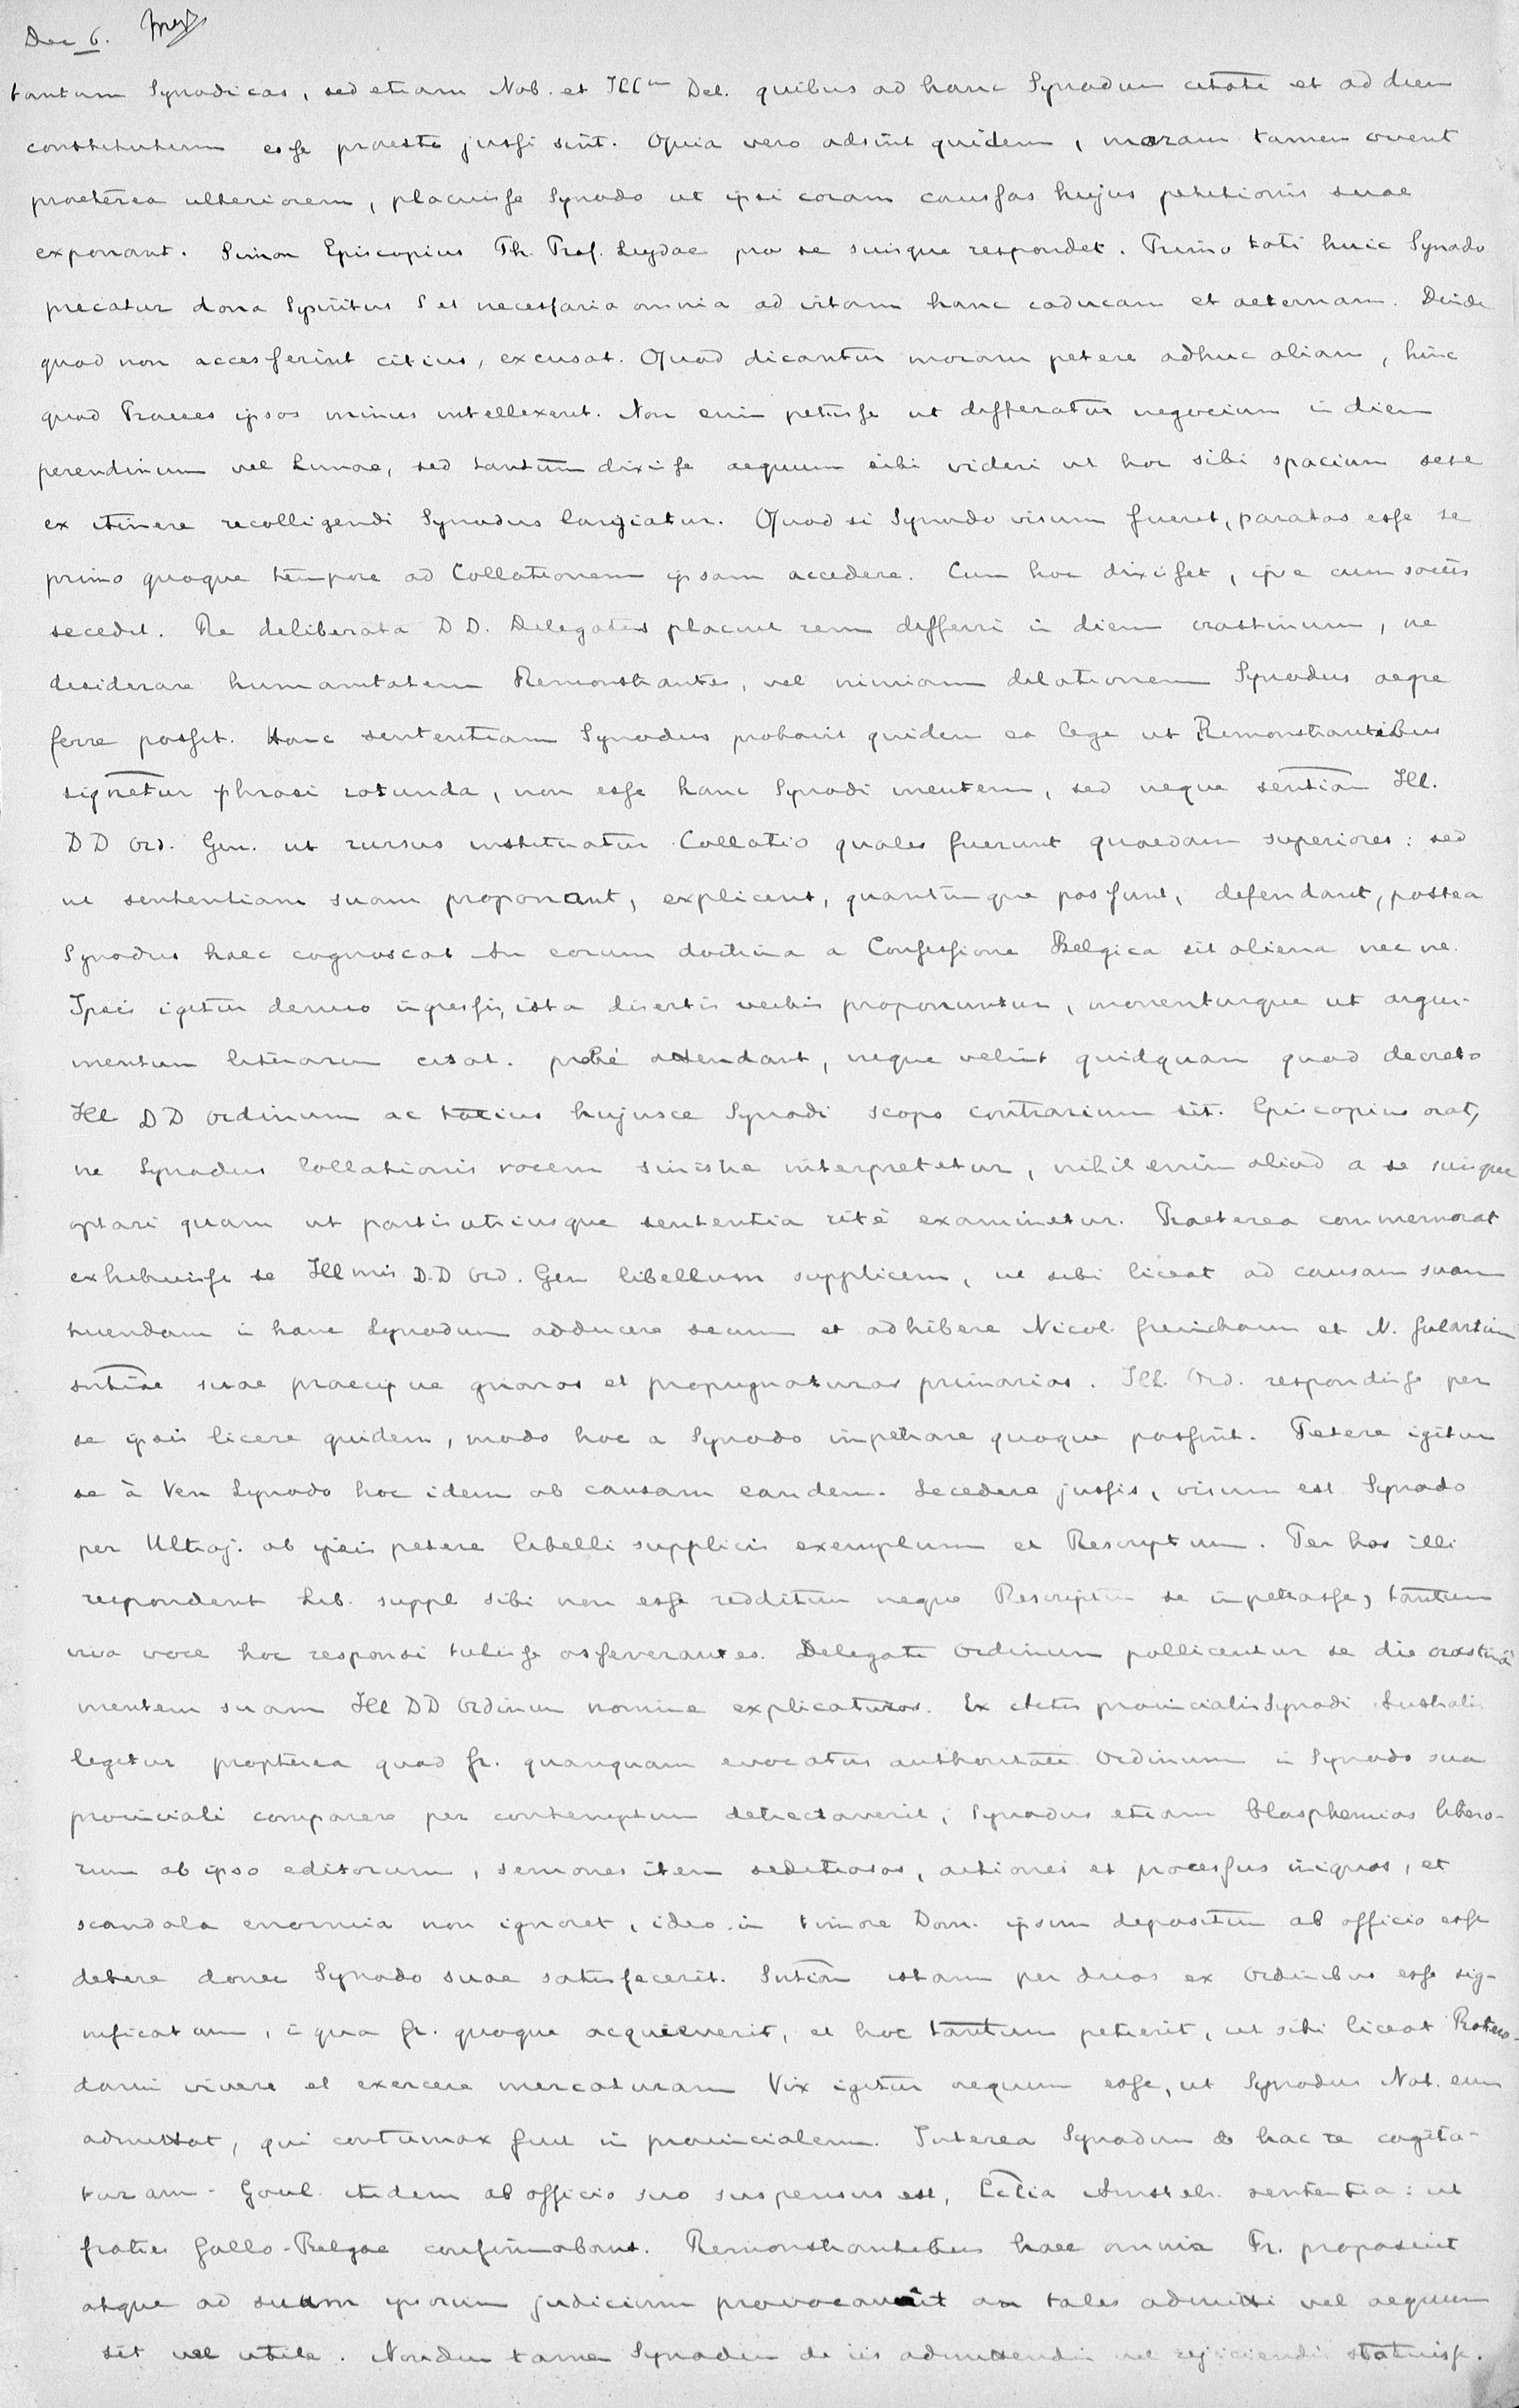 Dec 6.
tantum Synodicas, sed etiam Nob. et Illm Del. quibus ad hanc Synodum citati et ad diem
constitutum esse praesto jussi sint. Quia vero adsint quidem, moram tamen orent
praeterea ulteriorem, placuisse Synodo ut ipsi coram caussas hujus petitionis suae
exponant. Simon Episcopius Th. Prof. Lugdae pro se suisque respondet. Primo toti huic Synodo
precatur dona Spiritus S et necessaria omnia ad vitam hanc caducam et aeternam. Deinde
quod non accesserint citius, excusat. Quod dicantur moram petere adhuc aliam, hinc
quod Praeses ipsos minus intellexerit. Non enim petiisse ut differatur negocium in diem
perendinum vel Lunae, sed tantum dixisse aequum sibi videri ut hoc sibi spacium sese
ex itinere recolligendi Synodus largiatur. Quod si Synodo visum fuerit, paratos esse se
primo quoque tempore ad Collationem ipsam accedere. Cum hoc dixisset, ipse cum sociis
secedit. Re deliberata DD. Delegatis placuit rem differri in diem crastinum, ne
desiderare humanitatem Remonstrantes, vel nimiam dilationem Synodus aegre
ferre possit. Hanc sententiam Synodus probavit quidem ea lege ut Remonstrantibus
signetur phrasi rotunda, non esse hanc Synodi mentem, sed neque sentiam Ill.
DD Ord. Gen. ut rursus instituatur Collatio quales fuerunt quaedam superiores: sed
ut sententiam suam proponant, explicent, quantumque possunt, defendant, postea
Synodus haec cognoscat An eorum doctrina a Confessione Belgica sit aliena nec ne.
Ipsis igitur denuo ingressis, ista disertis verbis proponuntur, monenturque ut argu-
mentum literarum citat. probè attendant, neque velint quidquam quod decreto
Ill DD Ordinum ac totius hujusce Synodi scopo contrarium sit. Episcopius orat,
ne Synodus Collationis vocem sinistre interpretetur, nihil enim aliud a se suisque
optari quam ut partis utriusque sententia ritè examinetur. Praeterea commemorat
exhibuisse se Illmis D.D Ord. Gen libellum supplicem, ut sibi liceat ad causam suam
tuendam in hanc Synodum adducere secum et adhibere Nicol. Grevinchovium et N. Gulartium
sntiae suae praecipue gnaros et propugnatores primarios. Ill. Ord. respondisse per
se ipsis licere quidem, modo hoc a Synodo impetrare quoque possint. Petere igitur
se à Ven Synodo hoc idem ob causam eandem. Secedere jussis, visum est Synodo
per Ultraj. ab ipsis petere libelli supplicis exemplum et Rescriptum. Per hos illi
respondent Lib. suppl sibi non esse redditum neque Rescriptum se impetrasse, tantum
viva voce hoc responsi tulisse asseverantes. Delegati Ordinum pollicentur se die crastinâ
mentem suam Ill DD Ordinum nomine explicaturos. Ex Actis provincialis Synodi Australis
legitur propterea quod Gr. quanquam evocatus authoritate Ordinum in Synodo sua
provinciali comparere per contemptum detrectaverit, Synodus etiam blasphemias libro-
rum ab ipso editorum, sermones item seditiosos, actiones et processus iniquos, et
scandala enormia non ignoret, ideo in timore Dom. ipsum depositum ab officio esse
debere donec Synodo suae satisfecerit. Sntiam istam per duos ex Ordinibus esse sig-
nificatam, in qua Gr. quoque acquieverit, et hoc tantum petierit, ut sibi liceat Rotero-
dami vivere et exercere mercaturam Vix igitur aequum esse, ut Synodus Nat. eum
admittat, qui contumax fuit in provincialem. Interea Synodum de hac re cogita-
turam. Goul. itidem ab officio suo suspensus est, Eclia Amstelr. sententia: ut
fratres Gallo-Belgae confirmabant. Remonstrantibus haec omnia Pr. proposuit
atque ad suum ipsorum judicium provocavit an tales admitti vel aequum
sit vel utile. Nondum tamen Synodum de iis admittendis vel rejiciendis statuisse.